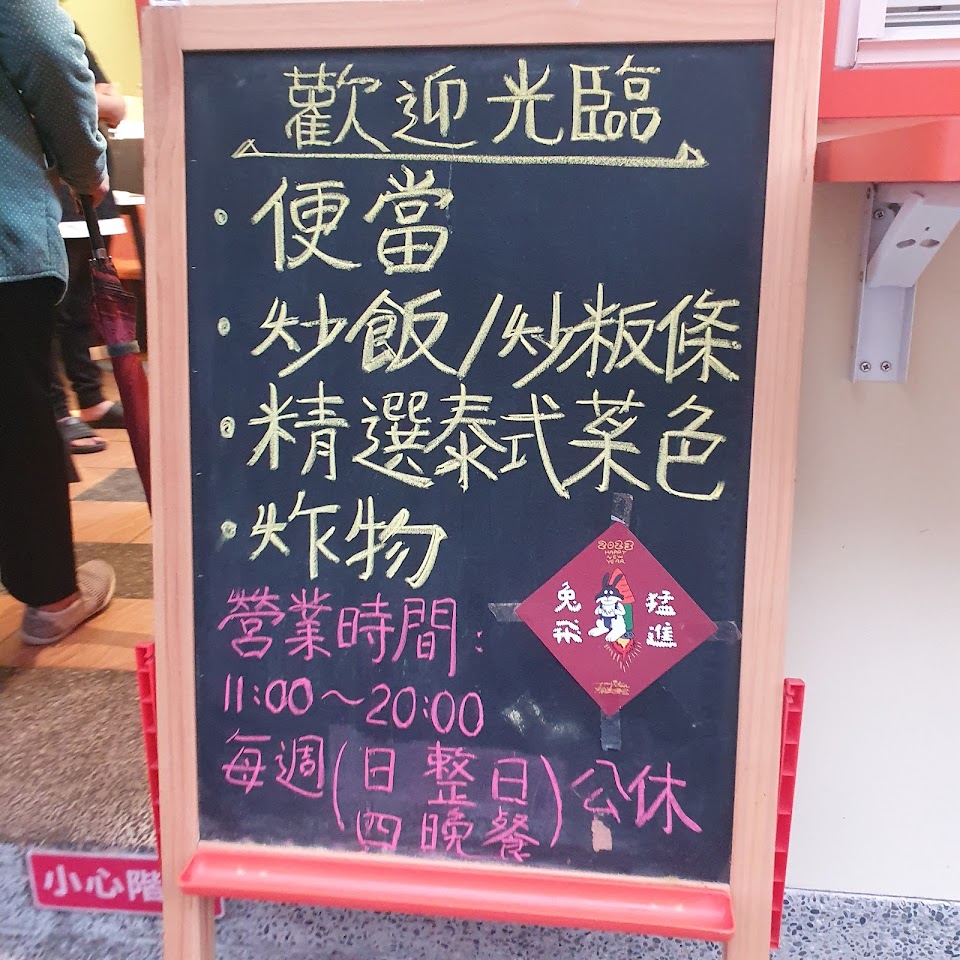 歡迎光臨
· 便當
· 炒飯/炒粄條
· 精選泰式菜色
· 炸物
2023
HAPPY
NEW
YEAR
兔飛
猛進
營業時間:
11:00~20:00
每週(日 整日
四 晚餐)公休
小心階